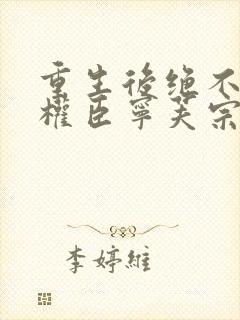 重生後绝不
權臣寧芙宗
李婷維